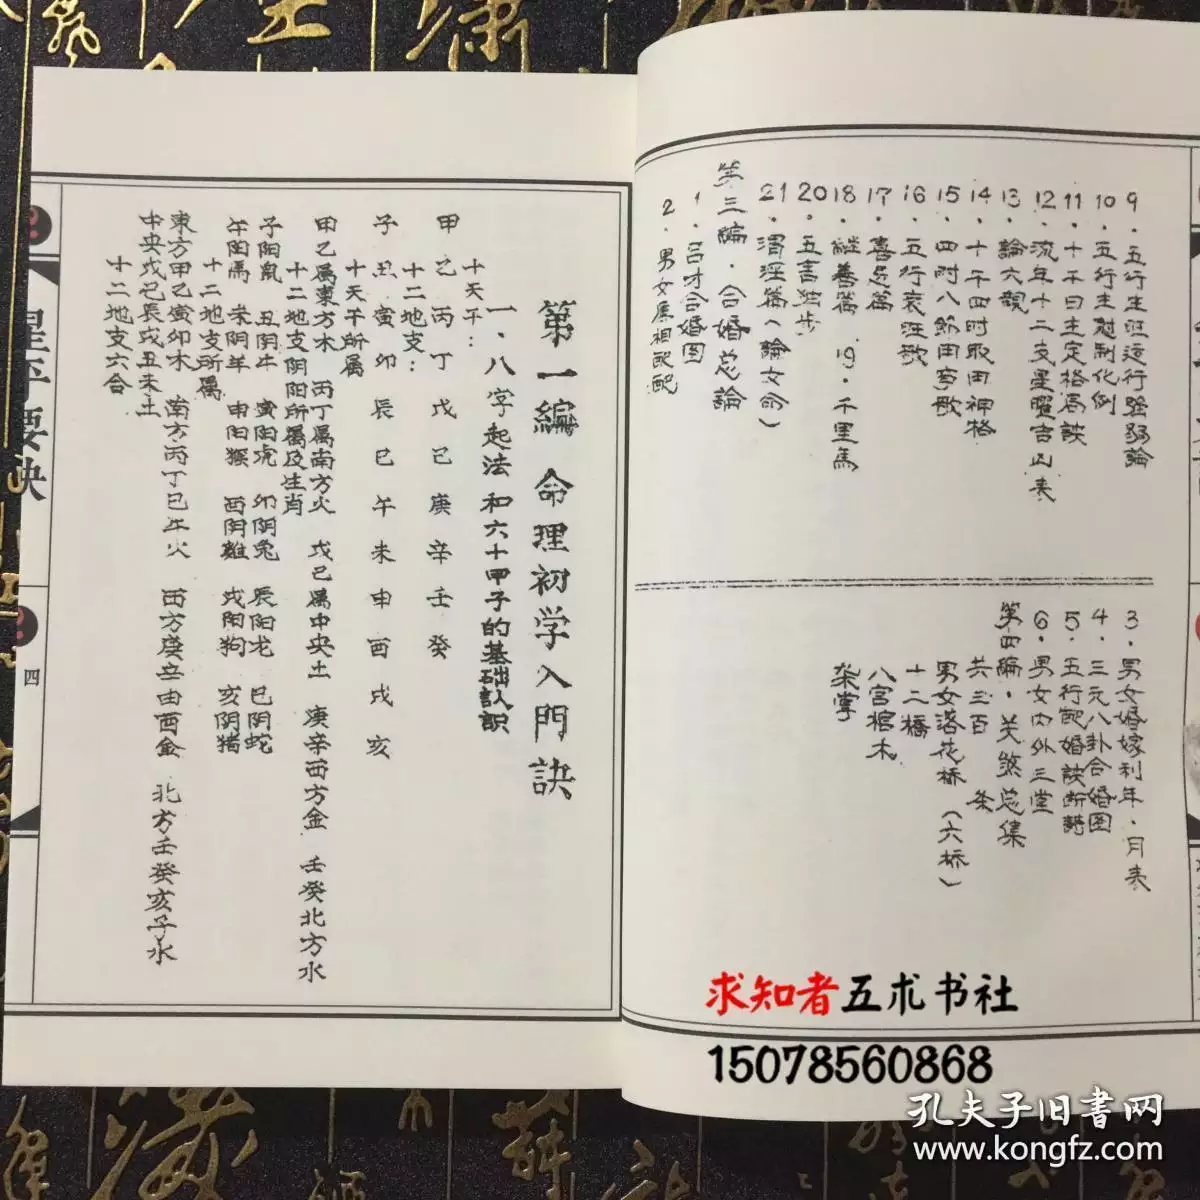 9．五行生旺运行强弱論
10．五行生尅制化例
11．十干日主定格局訣
12．流年十二支星曜吉凶表
13．論六親
14．十干四时取用神格
15．四时八節用事歌
16．五行衰旺歌
17．喜忌篇
18．継善篇 19．千里馬
20．五言独步
21．渭泾篇（論女命）
第三编．合婚总論
1．吕才合婚图
2．男女屬相配配
3．男女婚嫁利年．月表
4．三元八卦合婚图
5．五行配婚訣断語
6．男女内外三堂
第四编．关煞总集
共三百 条
男女落花桥（六桥）
十二橋
八宫棺木
第一編 命理初学入門訣
一．八字起法和六十甲子的基础认识
十天干：
甲乙丙丁戊己庚辛壬癸
十二地支：
子丑寅卯辰巳午未申酉戌亥
十天干所属
甲乙属東方木 丙丁属南方火 戊己属中央土 庚辛西方金 壬癸北方水
十二地支阴阳所属及生肖
子阳鼠 丑阴牛 寅阳虎 卯阴兔 辰阳龙 巳阴蛇
午阳馬 未阴羊 申阳猴 酉阴雞 戌阳狗 亥阴猪
十二地支所属
東方甲乙寅卯木 南方丙丁巳午火 西方庚辛申酉金 北方壬癸亥子水
中央戊己辰戌丑未土
十二地支六合
星平要诀
四
求知者五术书社
15078560868
孔夫子旧書网
www.kongfz.com